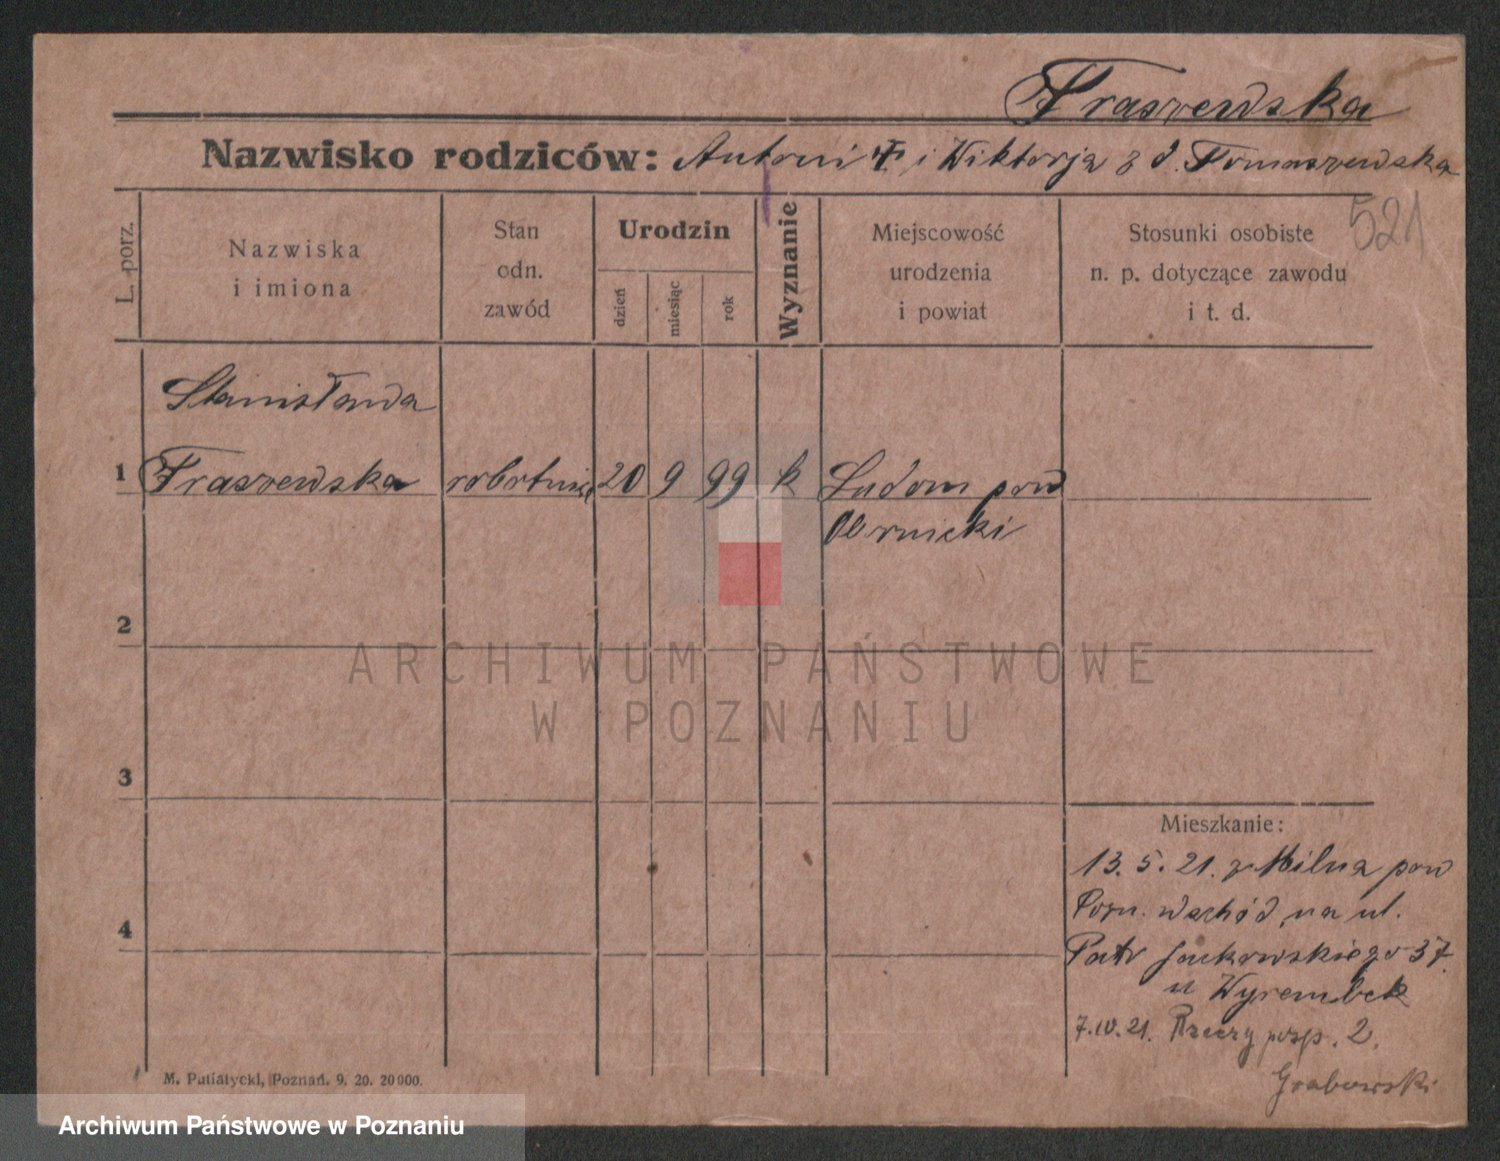 Fraszewska
Nazwisko rodziców: Antoni i Wiktorja z d. Tomaszewska
521
L. porz.
Nazwiska
i imiona
Stan
odn.
zawód
Urodzin
dzień
miesiąc
rok
Wyznanie
Miejscowość
urodzenia
i powiat
Stosunki osobiste
n. p. dotyczące zawodu
i t. d.
Stanisława
1 Fraszewska robotnic 20 9 99 k Ludom pow
Obornicki
2
3
4
Mieszkanie:
13. 5. 21. z Milna pow
Pozn. wschód, na ul.
Patr Jackowskiego 37.
u Wyrembek
7.10.21. Rzeczyposp. 2.
Grabowski
M. Putiatycki, Poznań. 9. 20. 20000.
ARCHIWUM PAŃSTWOWE
W POZNANIU
Archiwum Państwowe w Poznaniu